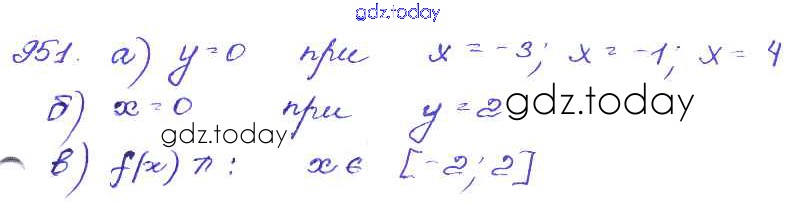 gdz.today
951. а) y=0 при x = -3; x = -1; x = 4
б) x=0 при y=2 gdz.today
gdz.today
в) f(x) ↗ : x ∈ [-2; 2]